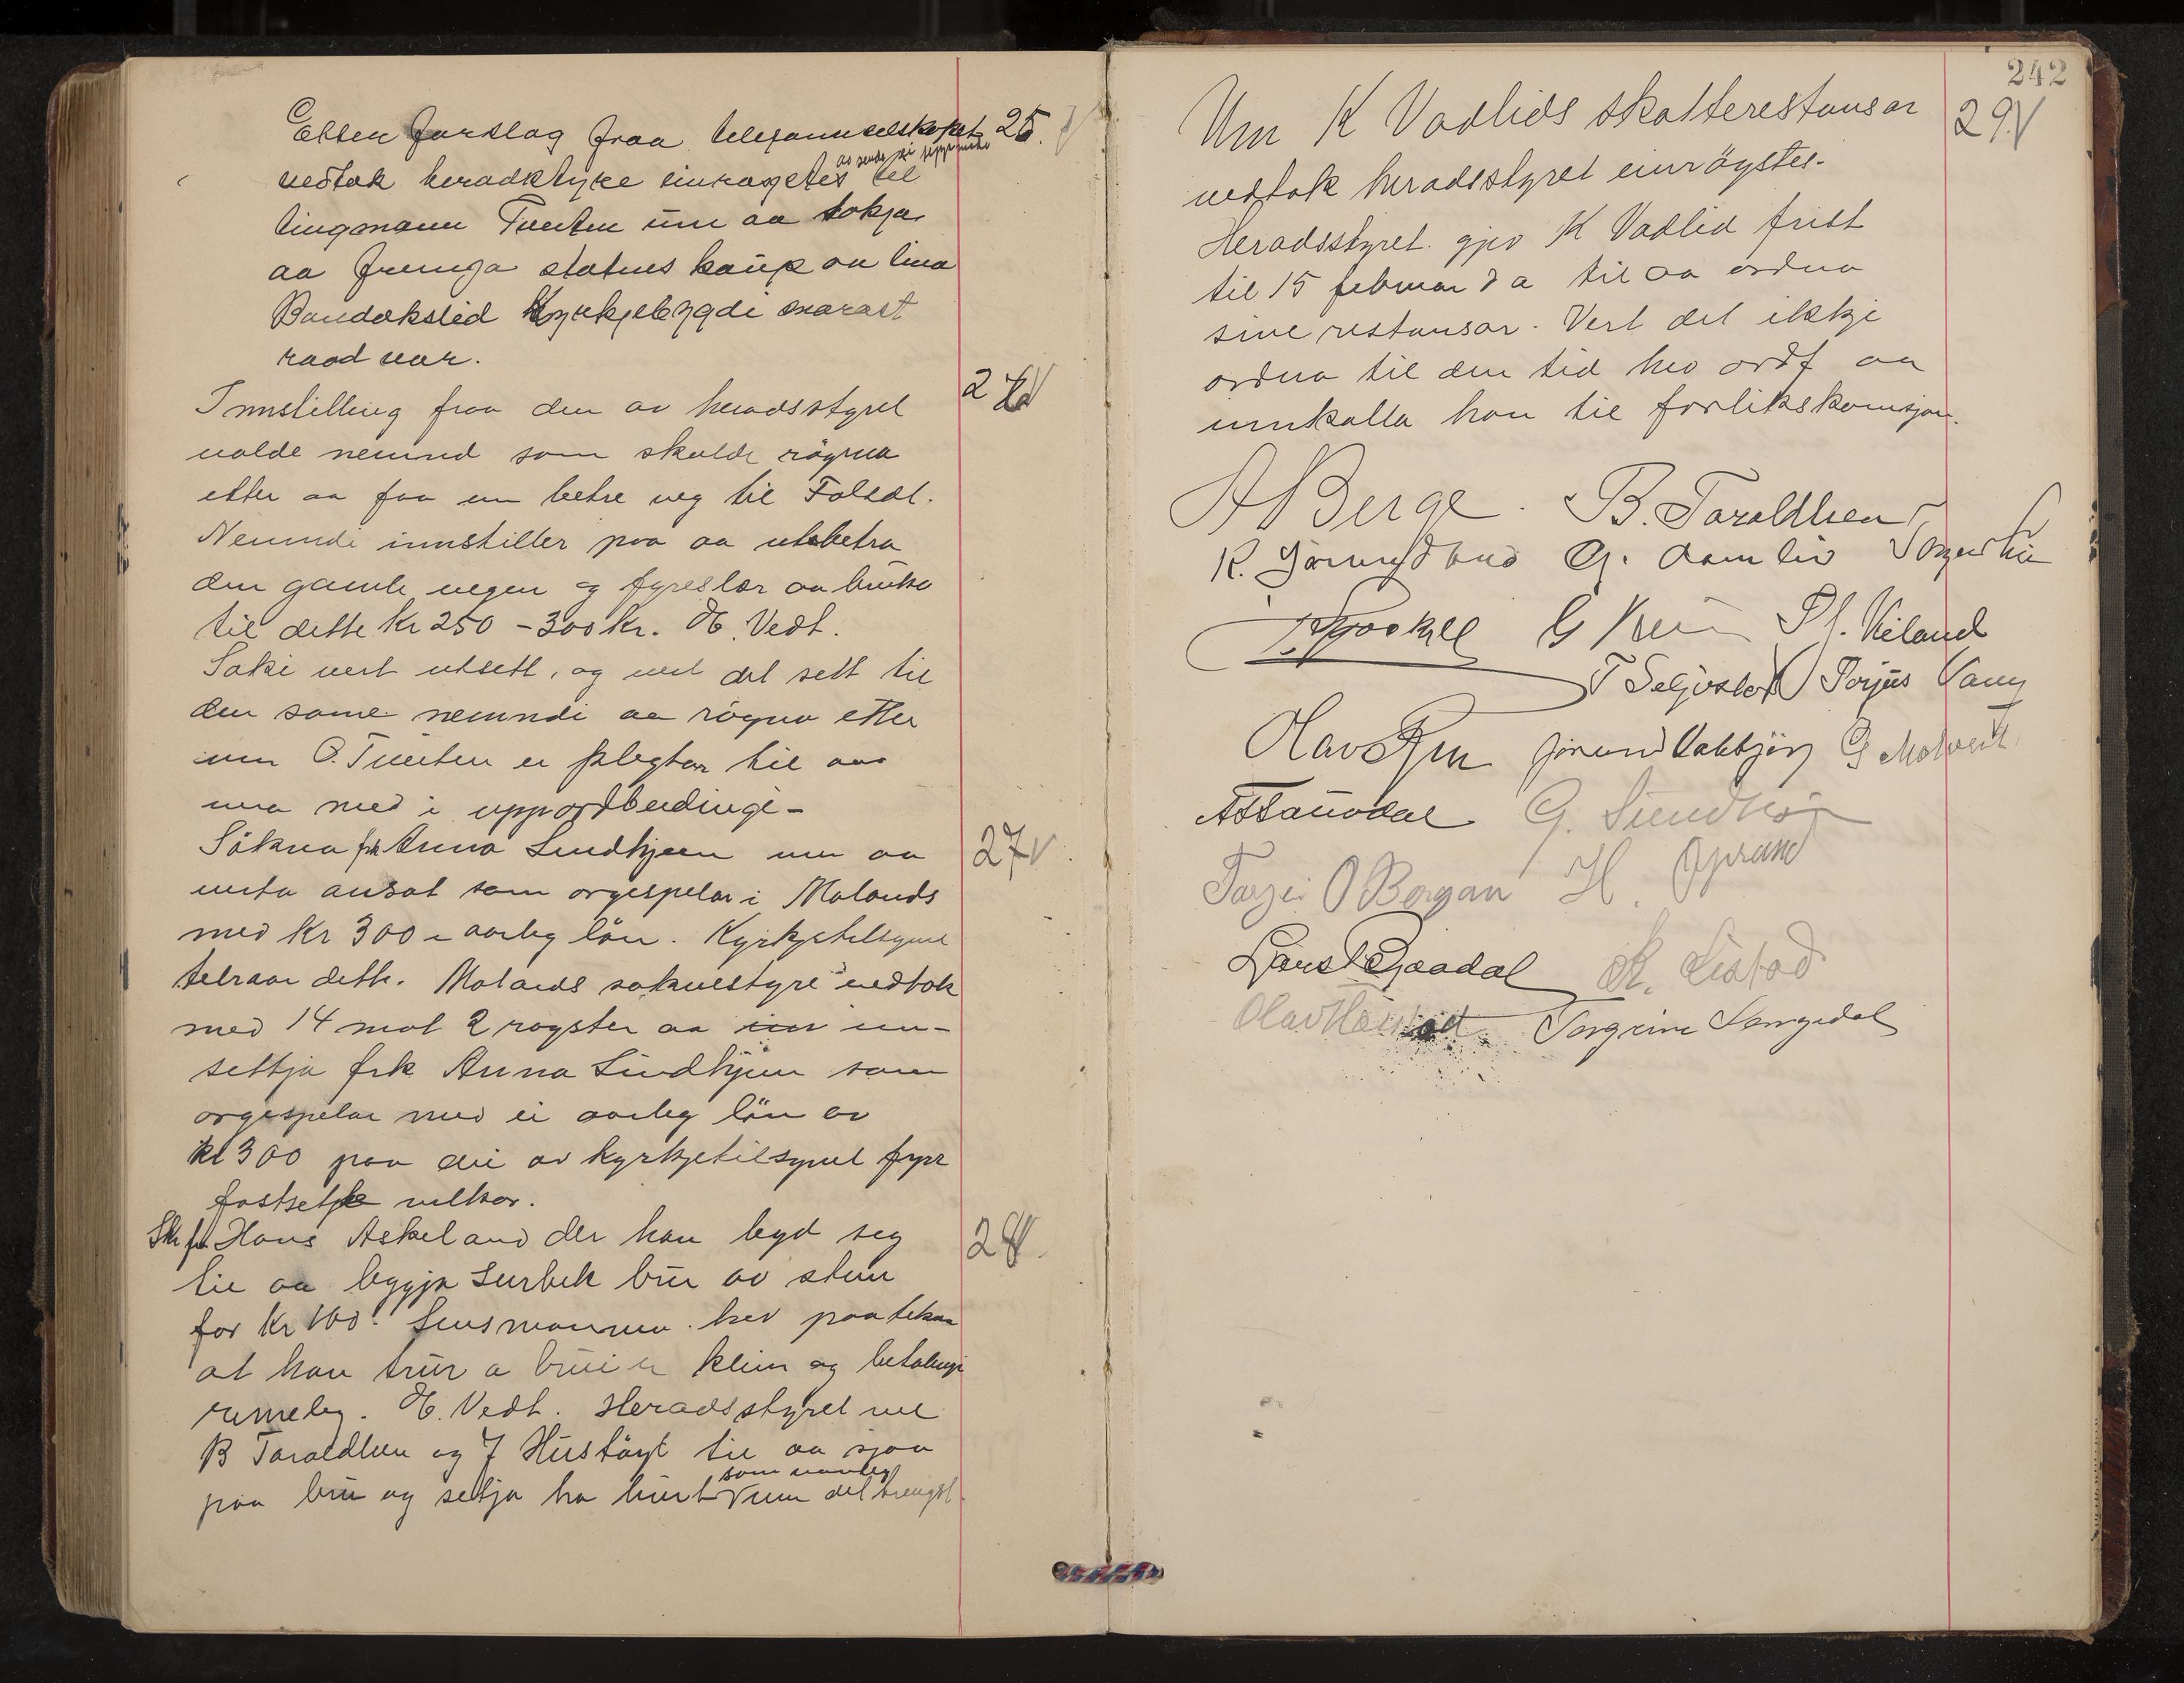 Etter forslag fraa telefonnselskapet 25.
vedtok heradstyre einrøystes av sende ei til
tingmann Tveiten um aa søkja
aa fremja statens kaup av lina
Bandakslid Kyrkjebygdi snarast
raad var.
Innstilling fraa den av heradsstyret 26
valde nemnd som skulde røyna
etter aa faa ein betre veg til Foldal.
Nemndi innstiller paa aa utbetra
den gamle vegen og fyreslær aa bruka
til dette Kr 250 - 300 kr. H. Vedt.
Saki vert utsett, og vert det sett til
den same nemndi aa røyna etter
um O. Tveiten er plegtar til aa
vera med i uppordbeidingi -
Søkna frk Anna Lindhjem um aa 27
verta ansat som orgespelar i Molands
med kr 300 - aarleg løn. Kyrkjetilsynet
telraar dette. Molands soknestyre vedtok
med 14 mot 2 røyster aa inn-
settja frk Anna Lindhjem som
orgespelar med ei aarleg løn av
kr 300 paa dei av kyrkjetilsynet fyre
fastsette vilkor.
Skr fr Hans Askeland der han byd seg 28
til aa byggja Surbek bru av stein
for Kr 100. Lensmannen hev paatekna
at han trur a brui er klein og betalingi
rimeleg. H. Vedt. Heradsstyret vel
B Taraldlien og J Hustøyt til aa sjaa
paa bru og setja ho burt som vanleg um det trengst.
242
Um K Vadlids skatterestansar 29
vedtok heradsstyret einrøystes.
Heradsstyret gjev K Vadlid frist
til 15 februar d a til aa ordna
sine restansar. Vert det ikkje
ordna til den tid hev ordf aa
innkalla han til forlikskomisjon.
A Berge. B. Taraldlien
K. G. Aamlid
G Kvin Veland
T Seljeslot Torjus Vaa
Olav Rui Jørund Vakkjør G
A G. Sundkøn
Targei O Bergan H.
K. Listad
Olav Torgrim Langedal